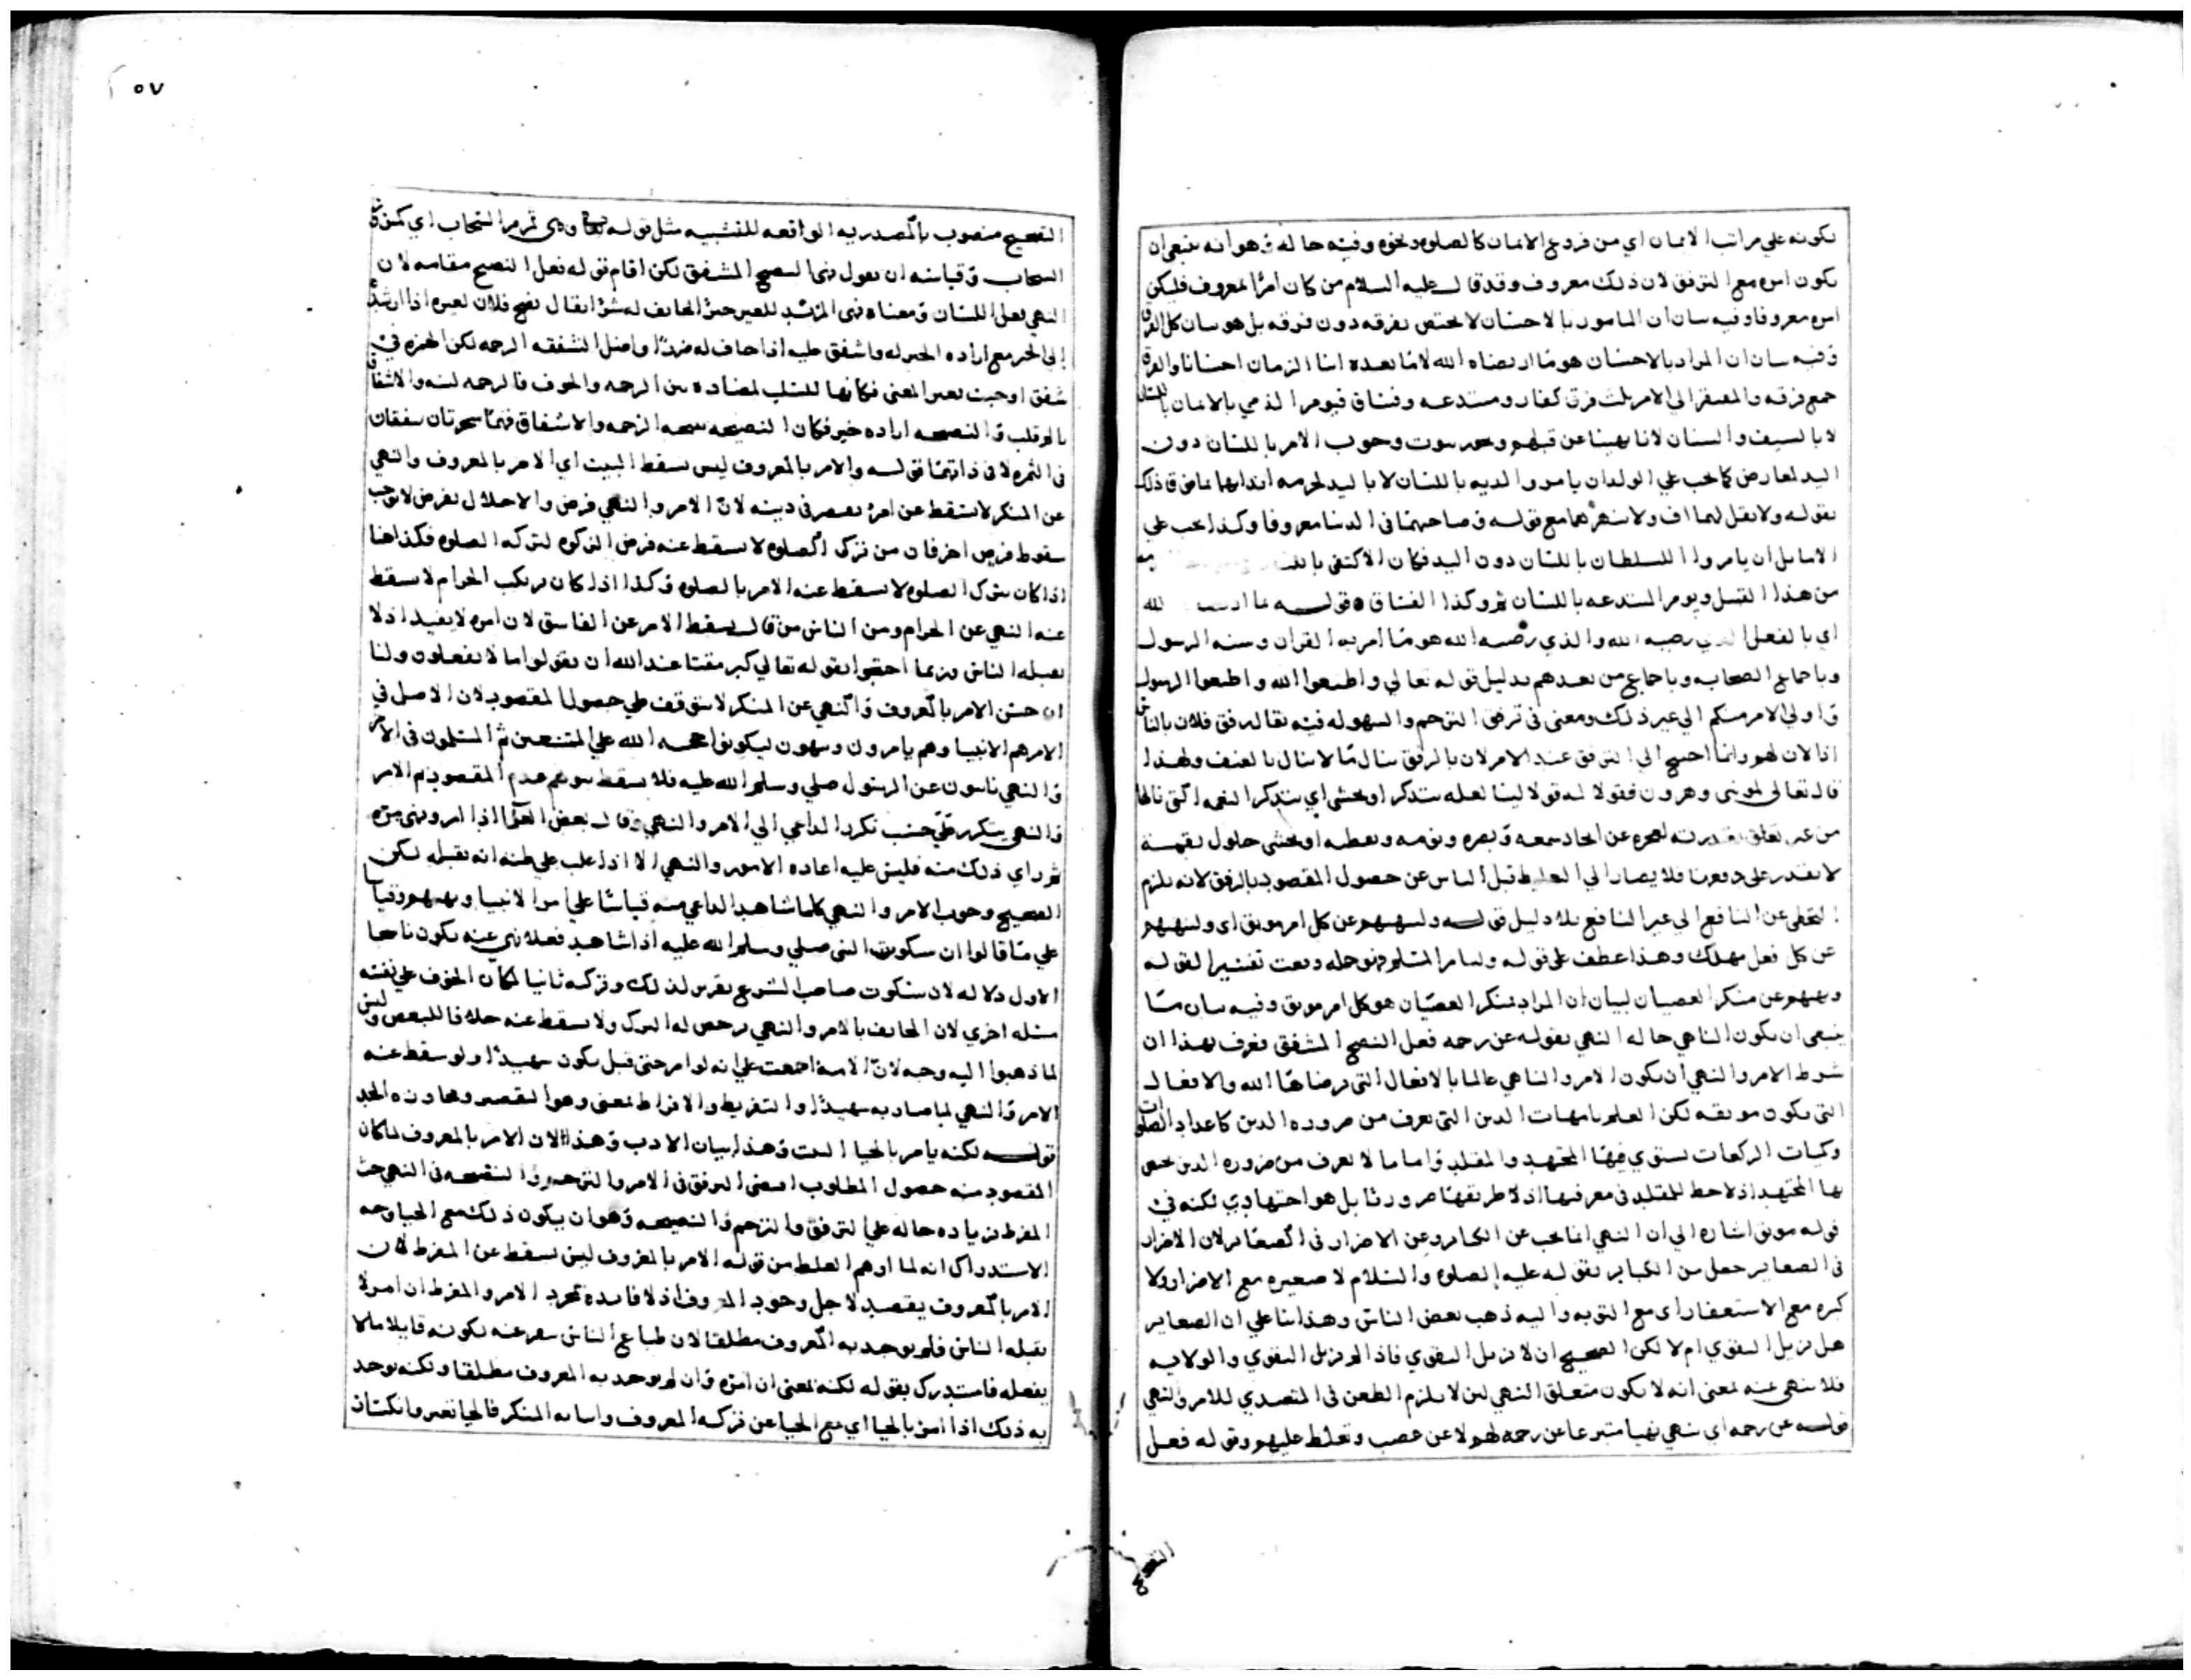 بكونه علي مراتب الايمان اي من فروع الايمان كالصلوه ونحوه وفيه حاله وهو انه ينبغي ان
يكون امره مع الترفق لان ذلك معروف وقد قال عليه السلام من كان امرا بمعروف فليكن
امره معروفا وفيه بيان ان المامور بالاحسان لا يختص بفرقه دون فرقه بل هو بيان كل الفرق
وفيه بيان ان المراد بالاحسان هو ما ارتضاه الله لا ما يعده ابنا الزمان احسانا والفرق
جمع فرقه والمفتقر الي الامر ثلث فرق كفار ومبتدعه وفساق فيومر الذمي بالايمان باللسان
لا بالسيف والسنان لانا نهينا عن قتلهم وبجوز ثبوت وجوب الامر باللسان دون
اليد لمعارض كما يجب علي الولد ان يامر والديه باللسان لا باليد لحرمه ايذايهما عملا في ذلك
بقوله ولا تقل لهما اف ولا تنهرهما مع قوله وصاحبهما في الدنيا معروفا وكذا يجب علي
الاماثل ان يامروا السلطان باللسان دون اليد فكان الاكتفي
من هذا القبيل ويومر المبتدعه باللسان ثم وكذا الفساق قوله بما الله
اي بالفعل الذي رضيه الله والذي رضيه الله هو ما امر به القران وسنه الرسول
وباجماع الصحابه وباجماع من بعدهم بدليل قوله تعالي واطيعوا الله واطيعوا الرسول
واولي الامر منكم الي غير ذلك ومعني في ترفق الترحم والسهوله فيه يقال رفق فلان بالناس
اذا لان لهم وانما احتيج الي الترفق عند الامر لان بالرفق ينال ما لا ينال بالعنف ولهذا
قال تعالى لموسى وهرون فقولا له قولا لينا لعله يتذكر او يخشي اي يتذكر النعمه التي نالها
من غير تعلق بقدرته لعجزه عن ايجاد سمعه وبصره ونومه ويقظته او يخشي حلول نقمة
لا يقدر علي دفعها فلا يصار الي التغليظ قبل الياس عن حصول المقصود بالرفق لانه يلزم
التخطي عن النافع الي غير النافع بلا دليل قوله ولينهيهم عن كل امر موبق اي ولينهيهم
عن كل فعل مهلك وهذا عطف علي قوله وليامر المسلم فهو جمله وقعت تفسيرا لقوله
ونهيهم عن منكر العصيان لبيان ان المراد بمنكر العصيان هو كل امر موبق وفيه بيان ما
ينبغي ان يكون الناهي حاله النهي بقوله عن رحمه فعل النصيح المشفق فعرف بهذا ان
شرط الامر والنهي ان يكون الامر والناهي عالما بالافعال التي يرضاها الله والافعال
التي يكون موبقه لكن العلم بامهات الدين التي تعرف من ضروره الدين كاعداد الصلوات
وكميات الركعات يستوي فيها المجتهد والمقلد واما ما لا يعرف من ضروره الدين يختص
بها المجتهد اذ لا حظ للمقلد في معرفتها اذ لا طريقها ضروريا بل هو اجتهادي لكنه في
قوله موبق اشاره الي ان النهي انما يجب عن الكباير وعن الاصرار في الصغاير لان الاصرار
في الصغاير جعل من الكباير بقوله عليه الصلوه والسلام لا صغيره مع الاصرار ولا
كبيره مع الاستغفار اي مع التوبه واليه ذهب بعض الناس وهذا بنا علي ان الصغاير
هل تزيل التقوي ام لا لكن الصحيح ان لا تزيل التقوي فاذا لم تزيل التقوي والولايه
فلا ينهي عنه بمعني انه لا يكون متعلق النهي لين لا يلزم الطعن في المتصدي للامر والنهي
قوله عن رحمه اي ينهي نهيا متبرعا عن رحمه لهم لا عن غضب وتغلظ عليهم وقوله فعل
النصيح
٥٧
النصيح منصوب بالمصدريه الواقعه للتشبيه مثل قوله تعالى وهي تمر مر السحاب اي كمرور
السحاب وقياسه ان يقول نهي النصيح المشفق لكن اقام قوله فعل النصيح مقامه لان
النهي فعل اللسان ومعناه نهي المرشد للغير حسن الخايف له شرا يقال نصح فلان لغيره اذا ارشده
الي الخير مع اراده الخير له واشفق عليه اذا خاف له ضررا واصل الشفقه الرحمه لكن الهمزه في
اشفق اوجبت تغير المعني فكانها للسلب لمضاده بين الرحمه والخوف فالرحمه لينه والاشفاق
بالم قلب والنصيحه اراده خير فكان النصيحه نتيجه الرحمه والاشفاق فهما شجرتان يتفقان
في الثمره لا في ذاتهما قوله والامر بالمعروف ليس يسقط البيت اي الامر بالمعروف والنهي
عن المنكر لا يسقط عن امرء يقصر في دينه لان الامر والنهي فرض والاخلال بفرض لا يوجب
سقوط فرض اخر فان من ترك الصلوه لا يسقط عنه فرض الزكوه لتركه الصلوه فكذا هنا
اذا كان يترك الصلوه لا يسقط عنه الامر بالصلوه وكذا اذا كان يرتكب الحرام لا يسقط
عنه النهي عن الحرام ومن الناس من قال يسقط الامر عن الفاسق لان امره لا يفيد اذ لا
يقبله الناس وربما احتجوا بقوله تعالي كبر مقتا عند الله ان تقولوا ما لا تفعلون ولنا
ان حسن الامر بالمعروف والنهي عن المنكر لا يتوقف علي حصول المقصود لان الاصل في
الامر هم الانبيا وهم يامرون وينهون ليكونوا حجه الله علي المتمنعين ثم المسلمون في الامر
والنهي نايبون عن الرسول صلي وسلم الله عليه فلا يسقط بوهم عدم المقصود ثم الامر
والنهي يتكرر علي حسب تكرر الداعي الي الامر والنهي وقال بعض العلما اذا امر ونهى مره
ثم راي ذلك منه فليس عليه اعاده الامور والنهي الا اذا غلب علي ظنه انه يقبله لكن
الصحيح وجوب الامر والنهي كلما شاهد الداعي منه قياسا علي امر الانبيا ونهيهم وقياسا
علي ما قالوا ان سكوت النبي صلي وسلم الله عليه اذا شاهد فعلا نهي عنه يكون ناسخا
الاول دلاله لان سكوت صاحب الشرع تقرير لذلك وتركه ثانيا لمكان الخوف علي نفسه
مسله اخري لان الخايف بالامر والنهي يرخص له الترك ولا يسقط عنه خلافا للبعض وليس
لما ذهبوا اليه وجه لان الامه اجمعت علي انه لو امر حتى قتل يكون شهيدا ولو سقط عنه
الامر والنهي لما صار به شهيدا والتفريط والافراط بمعني وهو التقصير ومجاوزه الحد
قوله لكنه يامر بالحيا البيت وهذا بيان الادب وهذا لان الامر بالمعروف لما كان
المقصود منه حصول المطلوب اقتضي الترفق في الامر والترحم والنصيحه في النهي حث
المفرط زياده حاله علي الترفق والترحم والنصيحه وهو ان يكون ذلك مع الحيا وجه
الاستدراك انه لما اوهم الغلط من قوله الامر بالمعروف ليس يسقط عن المفرط لان
الامر بالمعروف يقصد لاجل وجود المعروف اذ لا فايده لمجرد الامر والمفرط ان امر لا
يقبله الناس فلم يوجد به المعروف مطلقا لان طباع الناس ينفر عنه لكونه قايلا ما لا
يفعله فاستدرك بقوله لكنه بمعني ان امره وان لم يوجد به المعروف مطلقا ولكنه يوجد
به ذلك اذا امر بالحيا اي مع الحيا عن تركه المعروف واتيانه المنكر فالحيا تغير وانكسار